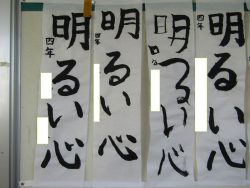 明るい心
四年
明るい心
明るい心
四年
明るい心
四年